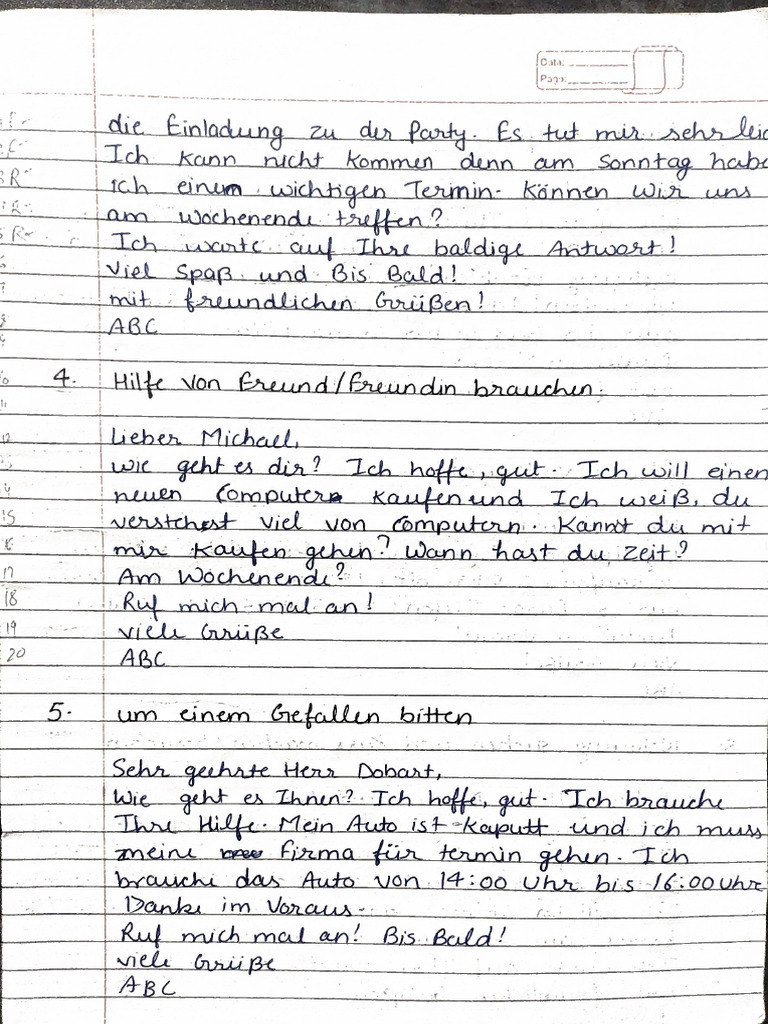 Date:
Page:
die Einladung zu der Party. Es tut mir sehr leid
Ich kann nicht kommen denn am Sonntag habe
ich einen wichtigen Termin. Können wir uns
am wochenende treffen?
Ich warte auf Ihre baldige Antwort!
viel Spaß und Bis Bald!
mit freundlichen Grüßen!
ABC
4. Hilfe von Freund/Freundin brauchen.
Lieber Michael,
wie geht es dir? Ich hoffe, gut. Ich will einen
neuen Computer kaufen und Ich weiß, du
verstehst viel von Computern. Kannst du mit
mir kaufen gehen? Wann hast du Zeit?
Am Wochenende?
Ruf mich mal an!
viele Grüße
ABC
5. um einem Gefallen bitten
Sehr geehrte Herr Dobart,
Wie geht es Ihnen? Ich hoffe, gut. Ich brauche
Ihre Hilfe. Mein Auto ist Kaputt und ich muss
meine Firma für termin gehen. Ich
brauche das Auto von 14:00 Uhr bis 16:00 Uhr
Danke im Voraus.
Ruf mich mal an! Bis Bald!
viele Grüße
ABC